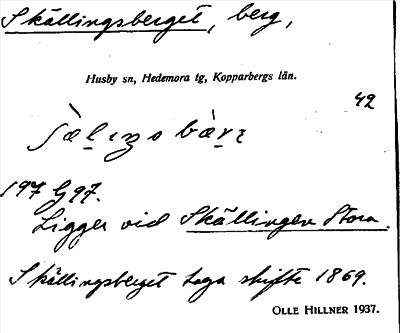 Skällingsberget, berg,
Husby sn, Hedemora tg, Kopparbergs län.
42
197 G 97.
Ligger vid Skällingen Stora.
Skällingsberget laga skifte 1869.
OLLE HILLNER 1937.